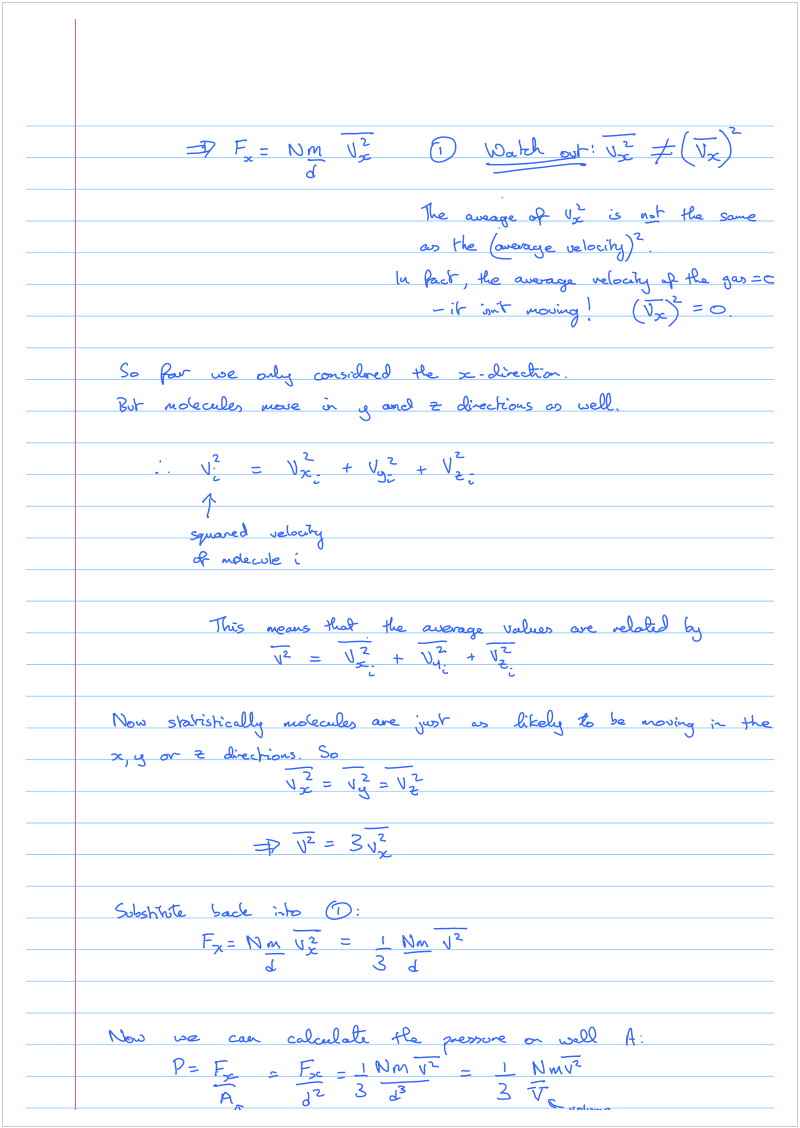 ⇒ Fₓ = Nm/d \overline{vₓ²} ① Watch out: \overline{vₓ²} ≠ (\overline{vₓ})²
The aveage of vₓ² is not the same
as the (average velocity)².
In fact, the average velocity of the gas = 0
– it isn't moving! (\overline{vₓ})² = 0.
So far we only considered the x-direction.
But molecules move in y and z directions as well.
∴ vᵢ² = v_{xᵢ}² + v_{yᵢ}² + v_{zᵢ}²
↑
squared velocity
of molecule i
This means that the average values are related by
\overline{v²} = \overline{v_{xᵢ}²} + \overline{v_{yᵢ}²} + \overline{v_{zᵢ}²}
Now statistically molecules are just as likely to be moving in the
x, y or z directions. So
\overline{vₓ²} = \overline{v_y²} = \overline{v_z²}
⇒ \overline{v²} = 3\overline{vₓ²}
Substitute back into ①:
Fₓ = Nm/d \overline{vₓ²} = 1/3 Nm/d \overline{v²}
Now we can calculate the pressure on wall A:
P = Fₓ/A = Fₓ/d² = 1/3 Nm\overline{v²}/d³ = 1/3 Nm\overline{v²}/V